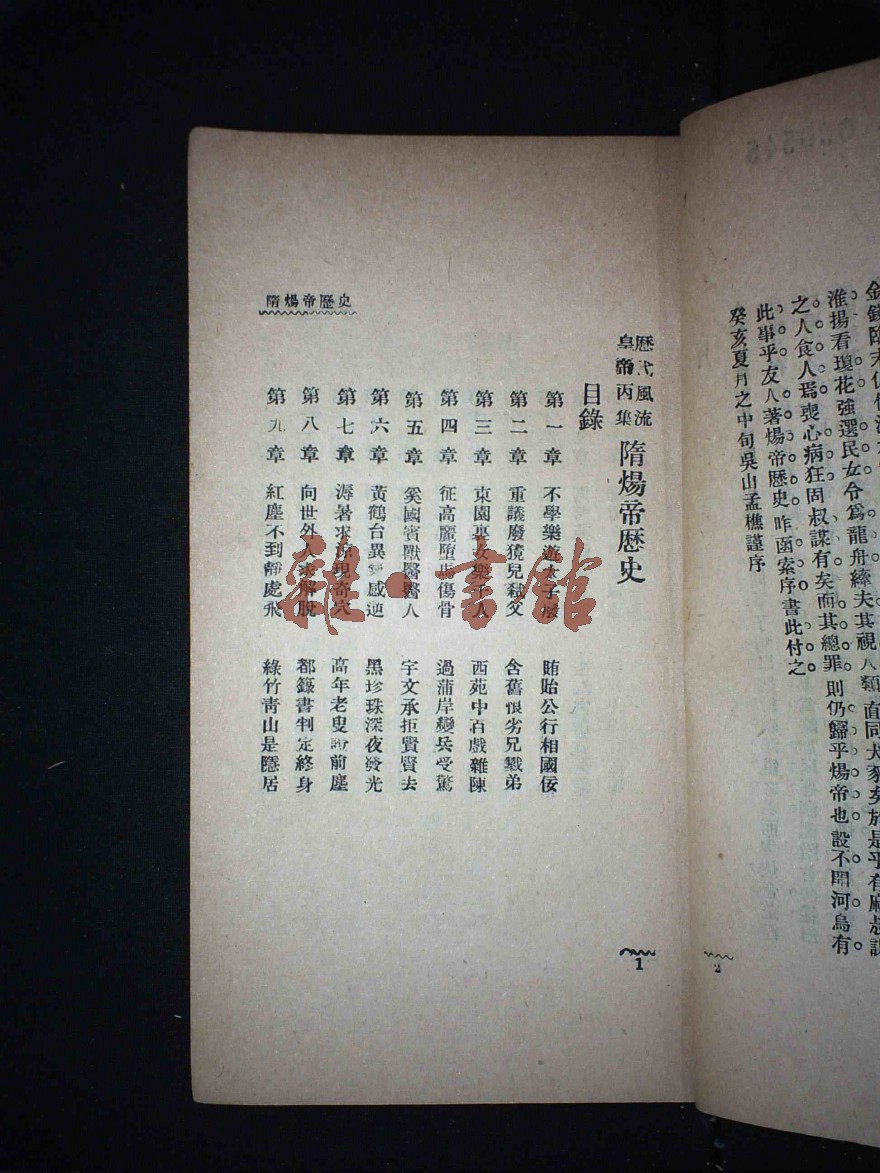 金錢臨末
淮揚看瓊花強選民女令爲龍舟縴夫其視人類直同犬豕矣於是乎有麻叔謀
之人食人焉喪心病狂固叔謀有矣而其總罪則仍歸乎煬帝也設不開河烏有
此事乎友人著煬帝歷史昨函索序書此付之
癸亥夏月之中旬吳山孟樵謹序
2
歷代風流
皇帝丙集
隋煬帝歷史
目錄
第一章 不學樂遊太子廢 賄貽公行相國佞
第二章 重議廢獍兒弒父 含舊恨劣兄戮弟
第三章 東園裏女樂千人 西苑中百戲雜陳
第四章 征高麗墮馬傷骨 過蒲岸變兵受驚
第五章 奚國賓獸醫醫人 宇文承拒賢賢去
第六章 黃鶴台異 感逆 黑珍珠深夜發光
第七章 溽暑求涼現奇穴 高年老叟 前塵
第八章 向世外人求解脫 都籙書判定終身
第九章 紅塵不到靜處飛 綠竹靑山是隱居
隋煬帝歷史
1
雜·書館